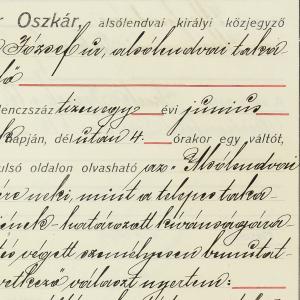 r Oszkár, alsólendvai királyi közjegyző
József úr, alsólendvai taka
ló
lenczszáz tizenegy évi június
napján, délután 4 órakor egy váltót,
ulsó oldalon olvasható az "Alsólendvai
ére neki, mint a telepes taka-
jének határozott kívánságára
ció végett személyesen bemutat-
vetkező választ nyertem: